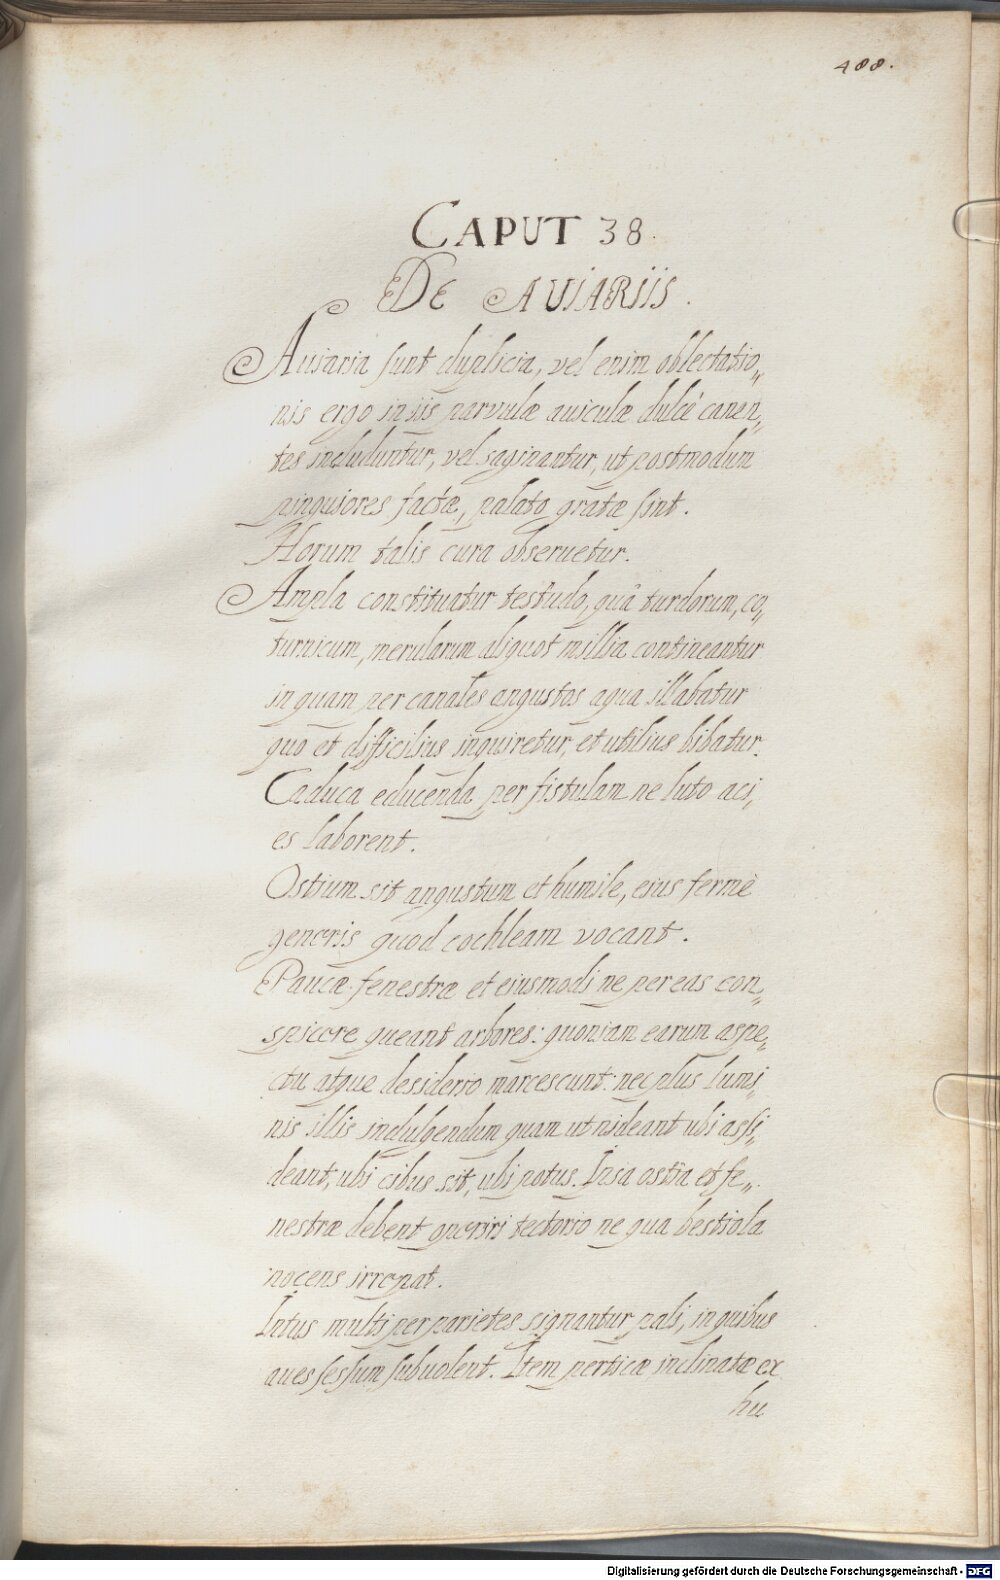 488.
CAPUT 38.
DE AUIARIIS.
Auiaria sunt duplicia, vel enim oblectatio„
nis ergo in iis parvulæ auiculæ dulcè canen„
tes includuntur, vel saginantur, ut postmodum
pinguiores factæ, palato gratæ sint.
Horum talis cura obseruetur.
Ampla constituatur testudo, quâ turdorum, co„
turnicum, merularum aliquot millia contineantur
in quam per canales angustos aqua illabatur
quo et difficilius inquiretur, et utilius bibatur.
Caduca educenda per fistulam ne luto aci„
es laborent.
Ostium sit angustum et humile, eius fermè
generis quod cochleam vocant.
Paucæ fenestræ et eiusmodi ne per eas con„
spicere queant arbores: quoniam earum aspe„
ctu atque dessiderio marcescunt: nec plus lumi„
nis illis indulgendum quam ut uideant ubi assi„
deant, ubi cibus sit, ubi potus. Ipsa ostia et fe„
nestræ debent operiri tectorio ne qua bestiola
nocens irrepat.
Intus multi per parietes signantur pali, in quibus
aues sessum subuolent. Item perticæ inclinatæ ex
hu
Digitalisierung gefördert durch die Deutsche Forschungsgemeinschaft - DFG